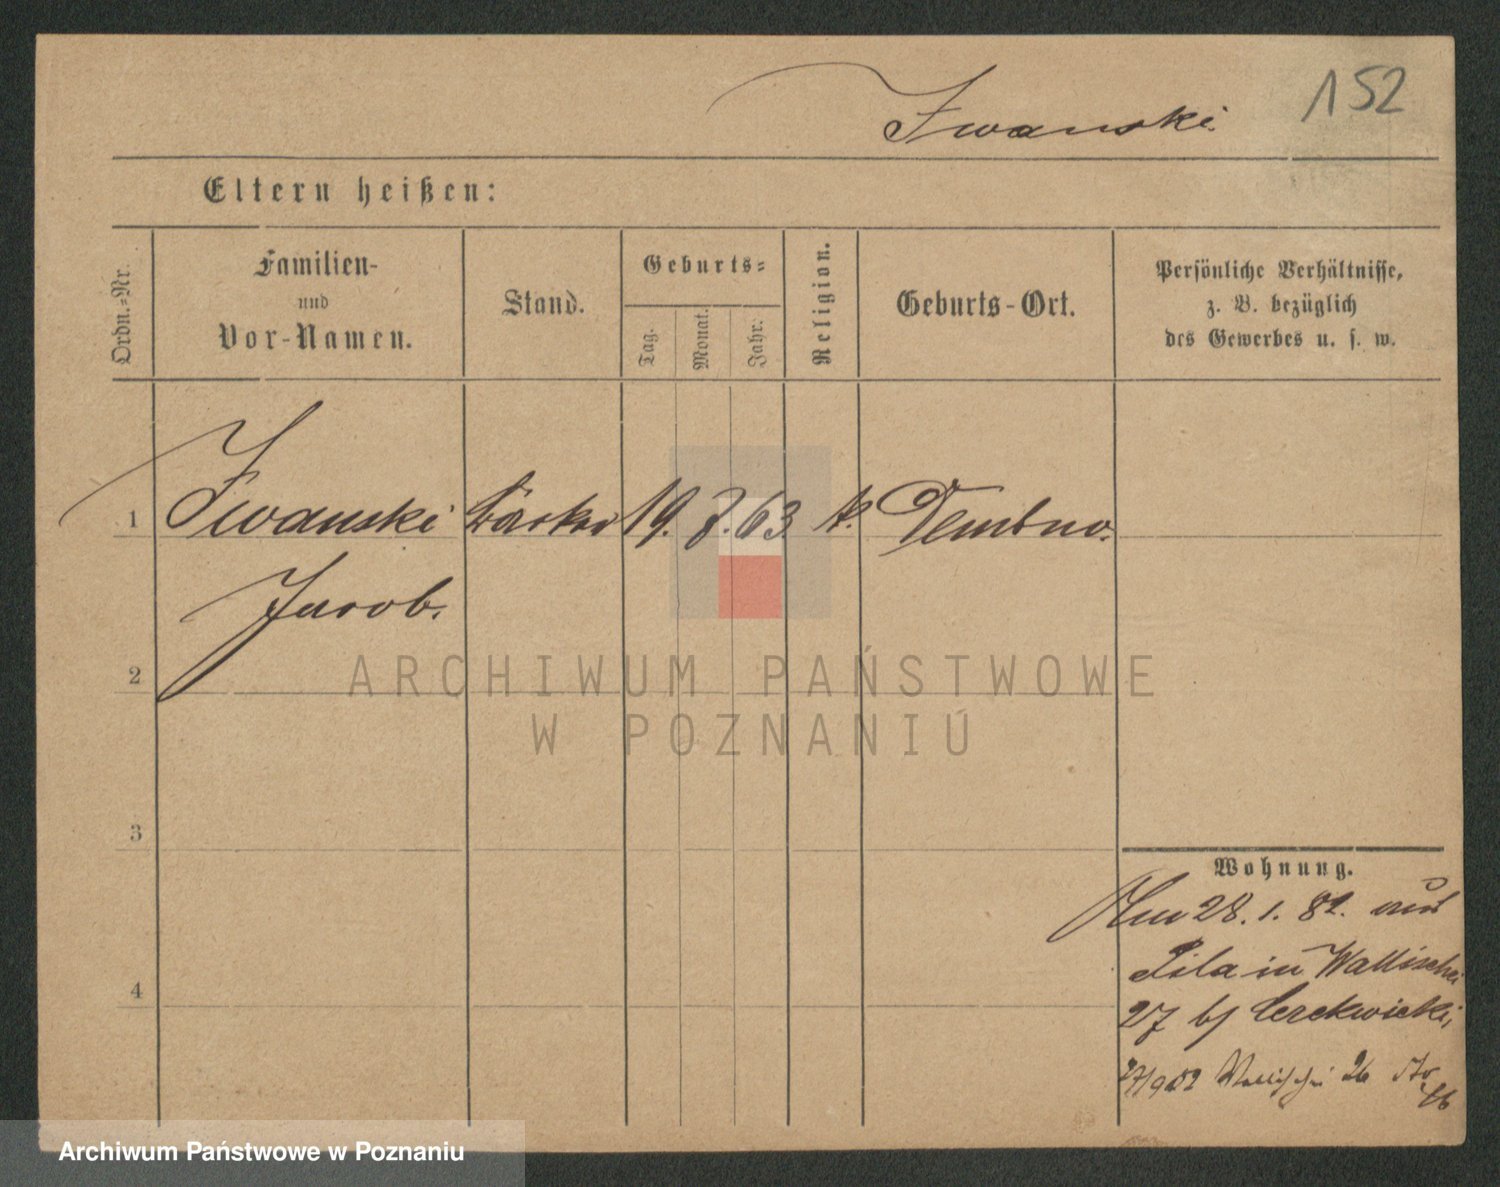 152
Iwanski.
Eltern heißen:
Ordn.-Nr.
Familien-
und
Vor-Namen.
Stand.
Geburts-
Tag.
Monat.
Jahr.
Religion.
Geburts-Ort.
Persönliche Verhältnisse,
z. B. bezüglich
des Gewerbes u. s. w.
1 Iwanski 19. 7. 63 k. Dembno.
Jacob.
2
3
4
Wohnung.
Am 28. 1. 82. aus
Pila in Wallischei
27 bj Cerekwicki,
27/9 82 Wallischei 26
ARCHIWUM PAŃSTWOWE
W POZNANIU
Archiwum Państwowe w Poznaniu